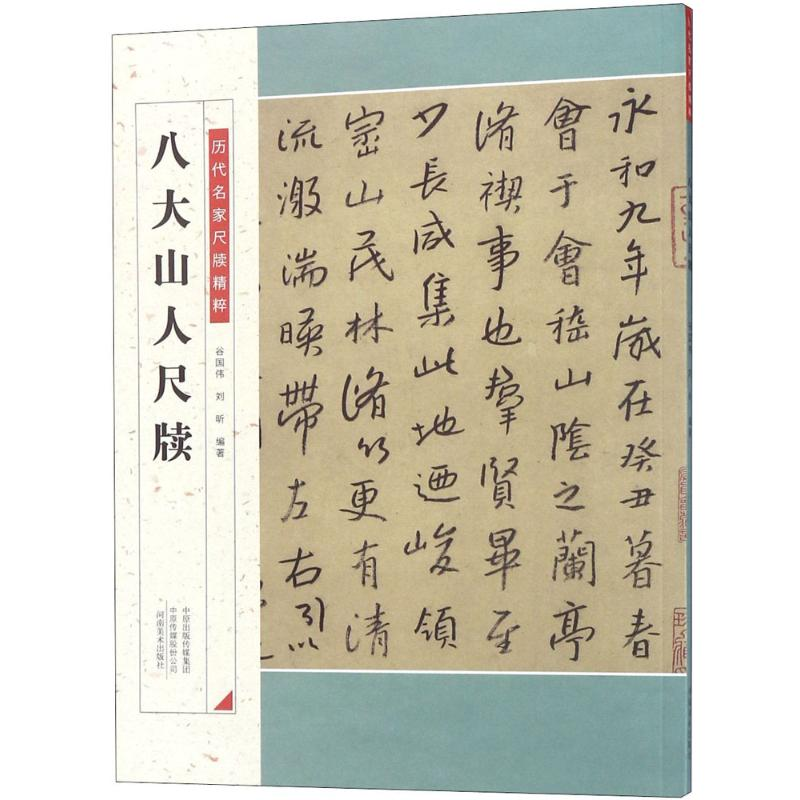 八大山人尺牍
历代名家尺牍精粹
谷国伟 刘昕 编著
中原出版传媒集团
中原传媒股份公司
河南美术出版社
永和九年歲在癸丑暮春
會于會嵇山陰之蘭亭
脩禊事也羣賢畢至
少長咸集此地迺峻領
崇山茂林脩竹更有清
流激湍暎帶左右引以